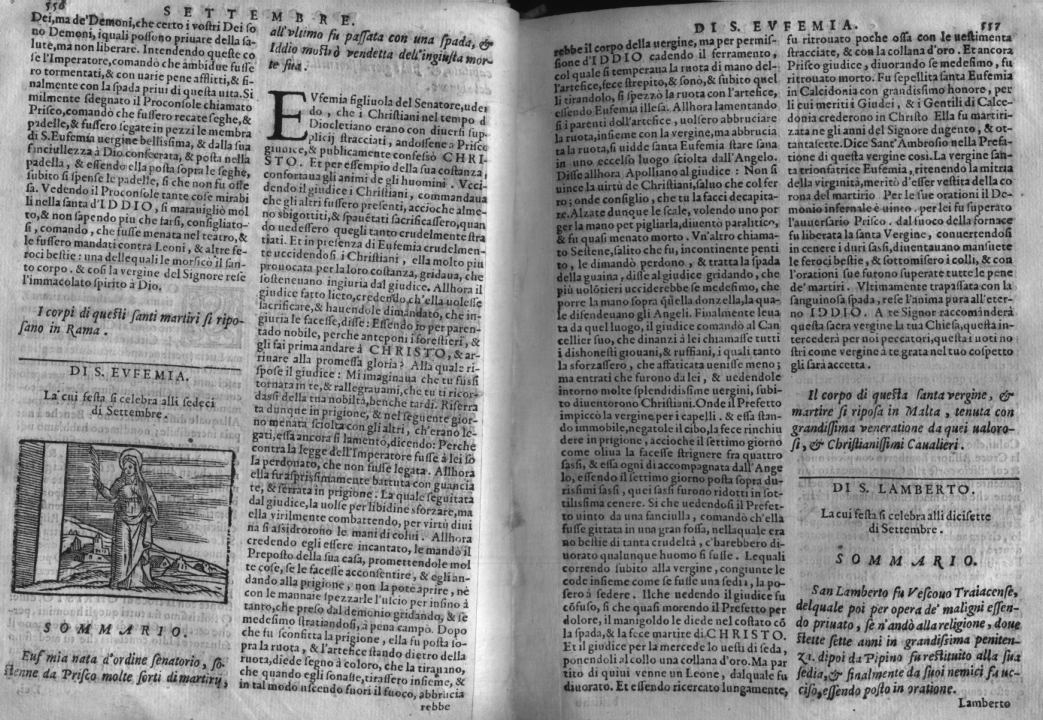 556
SETTEMBRE.
Dei, ma de'Demoni, che certo i vostri Dei so
no Demoni, iquali possono priuare della sa-
lute, ma non liberare. Intendendo queste co
se l'Imperatore, comandò che ambidue fusse
ro tormentati, & con uarie pene afflitti, & fi-
nalmente con la spada priui di questa uita. Si
milmente sdegnato il Proconsole chiamato
Prisco, comandò che fussero recate seghe, &
padelle, & fussero segate in pezzi le membra
di S. Eufemia uergine bellissima, & dalla sua
fanciullezza à Dio consecrata, & posta nella
padella, & essendo ella posta sopra le seghe,
subito si spense le padelle, si che non fu offe
sa. Vedendo il Proconsole tante cose mirabi
li nella santa d'IDDIO, si marauigliò mol
to, & non sapendo piu che farsi, consigliato-
si, comando, che fusse menata nel teatro, &
le fussero mandati contra Leoni, & altre fe-
roci bestie: una dellequali le morsico il san-
to corpo. & cosi la vergine del Signore rese
l'immacolato spirito à Dio.
I corpi di questi santi martiri si ripo-
sano in Rama.
DI S. EVFEMIA.
La cui festa si celebra alli sedeci
di Settembre.
SOMMARIO.
Eufemia nata d'ordine senatorio, so-
stenne da Prisco molte sorti di martiry,
all'vltimo fu passata con una spada, &
Iddio mostrò vendetta dell'ingiusta mor-
te sua.
EVfemia figliuola del Senatore, uden
do, che i Christiani nel tempo di
Diocletiano erano con diuersi sup-
plicij stracciati, andossene a Prisco
giudice, & publicamente confessò CHRI-
STO. Et per essempio della sua costanza,
confortaua gli animi de gli huomini. Vcci-
dendo il giudice i Christiani, commandaua
che gli altri fussero presenti, accioche alme-
no sbigottiti, & spauētati sacrificassero, quan
do uedessero quegli tanto crudelmente stra
tiati. Et in presenza di Eufemia crudelmen-
te uccidendosi i Christiani, ella molto piu
prouocata per la loro costanza, gridaua, che
sosteneuano ingiuria dal giudice. Allhora il
giudice fatto lieto, credendo ch'ella uolesse
sacrificare, & hauendole dimandato, che in-
giuria le facesse, disse: Essendo io per paren-
tado nobile, perche anteponi i forestieri, &
gli fai prima andare à CHRISTO, & ar-
riuare alla promessa gloria? Alla quale ri-
spose il giudice: Mi imaginaua che tu fussi
tornata in te, & rallegrauami, che tu ti ricor-
dassi della tua nobiltà, benche tardi. Riserra
ta dunque in prigione, & nel seguente gior-
no menata sciolta con gli altri, ch'erano le-
gati, essa ancora si lamentò, dicendo: Perche
contra la legge dell'Imperatore fusse à lei so
la perdonato, che non fusse legata. Allhora
ella fu asprissimamente battuta con guancia
te, & serrata in prigione. La quale seguitata
dal giudice, la uolse per libidine sforzare, ma
ella virilmente combattendo, per virtù diui
na si assidrorono le mani di colui. Allhora
credendo egli essere incantato, le mandò il
Preposto della sua casa, promettendole mol
te cose, se le facesse acconsentire, & egli an-
dando alla prigione, non la pote aprire, nè
con le mannare spezzarle l'uscio per insino à
tanto, che preso dal demonio gridando, & se
medesimo stratiandosi, à pena campò. Dopo
che fu sconfitta la prigione, ella fu posta so-
pra la ruota, & l'artefice stando dietro della
ruota, diede segno à coloro, che la tirauano,
che quando egli sonasse, tirassero insieme, &
in tal modo uscendo fuori il fuoco, abbrucia
rebbe
DI S. EVFEMIA.
557
rebbe il corpo della uergine, ma per permis-
sione d'IDDIO cadendo il ferramento,
col quale si temperana la ruota di mano del-
l'artefice, fece strepito, & sonò, & subito quel
li tirandolo, si spezzò la ruota con l'artefice,
essendo Eufemia illesa. Allhora lamentando
si i parenti dell'artefice, uolsero abbruciare
la ruota, insieme con la vergine, ma abbrucia
ta la ruota, si uidde santa Eufemia stare sana
in uno eccelso luogo sciolta dall'Angelo.
Disse allhora Apolliano al giudice: Non si
uince la uirtù de Christiani, saluo che col fer
ro; onde consiglio, che tu la facci decapita-
re. Alzate dunque le scale, volendo uno por
ger la mano per pigliarla, diuentò paralitico,
& fu quasi menato morto. Vn'altro chiama-
to Sestene, salito che fu, incontinente penti
to, le dimandò perdono, & tratta la spada
della guaina, disse al giudice gridando, che
più uolōtieri ucciderebbe se medesimo, che
porre la mano sopra q̄uella donzella, la qua-
le difendeuano gli Angeli. Finalmente leua
ta da quel luogo, il giudice comandò al Can
cellier suo, che dinanzi à lei chiamasse tutti
i dishonesti giouani, & ruffiani, i quali tanto
la sforzassero, che affaticata uenisse meno;
ma entrati che furono da lei, & uedendole
intorno molte splendidissime uergini, subi-
to diuentorono Christiani. Onde il Prefetto
impiccò la vergine per i capelli. & essa stan-
do immobile, negatole il cibo, la fece rinchiu
dere in prigione, accioche il settimo giorno
come oliua la facesse strignere fra quattro
sassi, & essa ogni dì accompagnata dall'Ange
lo, essendo il settimo giorno posta sopra du-
rissimi sassi, quei sassi furono ridotti in sot-
tilissima cenere. Si che uedendosi il Prefet-
to uinto da una fanciulla, comandò ch'ella
fusse gittata in una gran fossa, nellaquale era
no bestie di tanta crudeltà, c'harebbero di-
uorato qualunque huomo si fusse. Lequali
correndo subito alla vergine, congiunte le
code insieme come se fusse una sedia, la po-
sero à sedere. Ilche uedendo il giudice fu
cōfuso, si che quasi morendo il Prefetto per
dolore, il manigoldo le diede nel costato cō
la spada, & la fece martire di CHRISTO.
Et il giudice per la mercede lo uesti di seda,
ponendoli al collo una collana d'oro. Ma par
tito di quiui venne un Leone, dalquale fu
diuorato. Et essendo ricercato lungamente,
fu ritrouato poche ossa con le uestimenta
stracciate, & con la collana d'oro. Et ancora
Prisco giudice, diuorando se medesimo, fu
ritrouato morto. Fu sepellita santa Eufemia
in Calcidonia con grandissimo honore, per
li cui meriti i Giudei, & i Gentili di Calce-
donia crederono in Christo. Ella fu martiri-
zata ne gli anni del Signore dugento, & ot-
tantasette. Dice Sant'Ambrosio nella Prefa-
tione di questa vergine cosi. La vergine san-
ta trionfatrice Eufemia, ritenendo la mitria
della virginità, meritò d'esser vestita della co
rona del martirio. Per le sue orationi il De-
monio infernale è uinto. per lei fu superato
l'auuersario Prisco. dal fuoco della fornace
fu liberata la santa Vergine, conuertendosi
in cenere i duri sassi, diuentauano mansuete
le feroci bestie, & sottomisero i colli, & con
l'orationi sue furono superate tutte le pene
de' martiri. Vltimamente trapassata con la
sanguinosa spada, rese l'anima pura all'eter-
no IDDIO. A te Signor raccomanderà
questa sacra vergine la tua Chiesa, questa in-
tercederà per noi peccatori, questa i uoti no
stri come vergine à te grata nel tuo cospetto
gli sarà accetta.
Il corpo di questa santa vergine, &
martire si riposa in Malta, tenuta con
grandissima veneratione da quei ualoro-
si, & Christianissimi Caualieri.
DI S. LAMBERTO.
La cui festa si celebra alli dicisette
di Settembre.
SOMMARIO.
San Lamberto fu Vescouo Traiacense,
delquale poi per opera de' maligni essen-
do priuato, se n'andò alla religione, doue
stette sette anni in grandissima peniten-
za. dipoi da Pipino fu restituito alla sua
sedia, & finalmente da suoi nemici fu uc-
ciso, essendo posto in oratione.
Lamberto